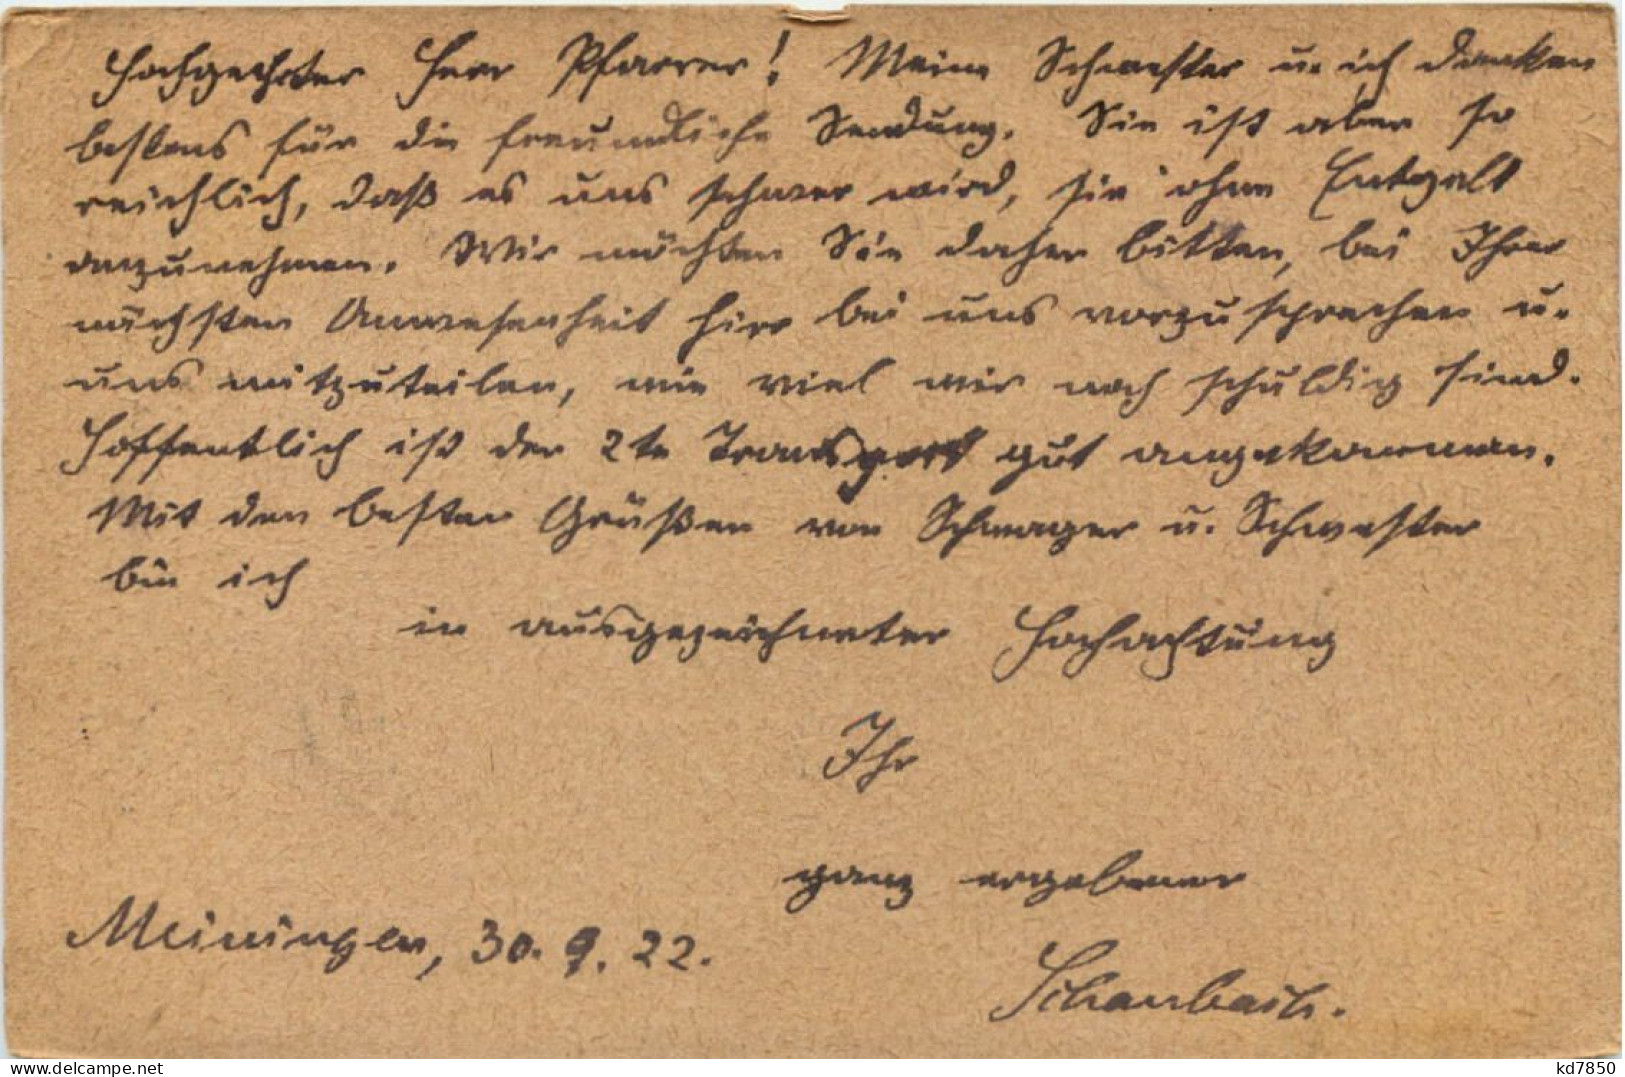 Hochgeehrter Herr Pfarrer! Meine Schwester u. ich danken
bestens für die freundliche Sendung. Sie ist aber so
reichlich, daß es uns schwer wird, sie ohne Entgelt
anzunehmen. Wir möchten Sie daher bitten, bei Ihrer
nächsten Anwesenheit hier bei uns vorzusprechen u.
uns mitzuteilen, wie viel wir noch schuldig sind.
Hoffentlich ist der 2te Transport gut angekommen.
Mit den besten Grüßen von Schwager u. Schwester
bin ich
in ausgezeichneter Hochachtung
Ihr
ganz ergebener
Meiningen, 30. 9. 22.
Schaubach.
www.delcampe.net
kd7850